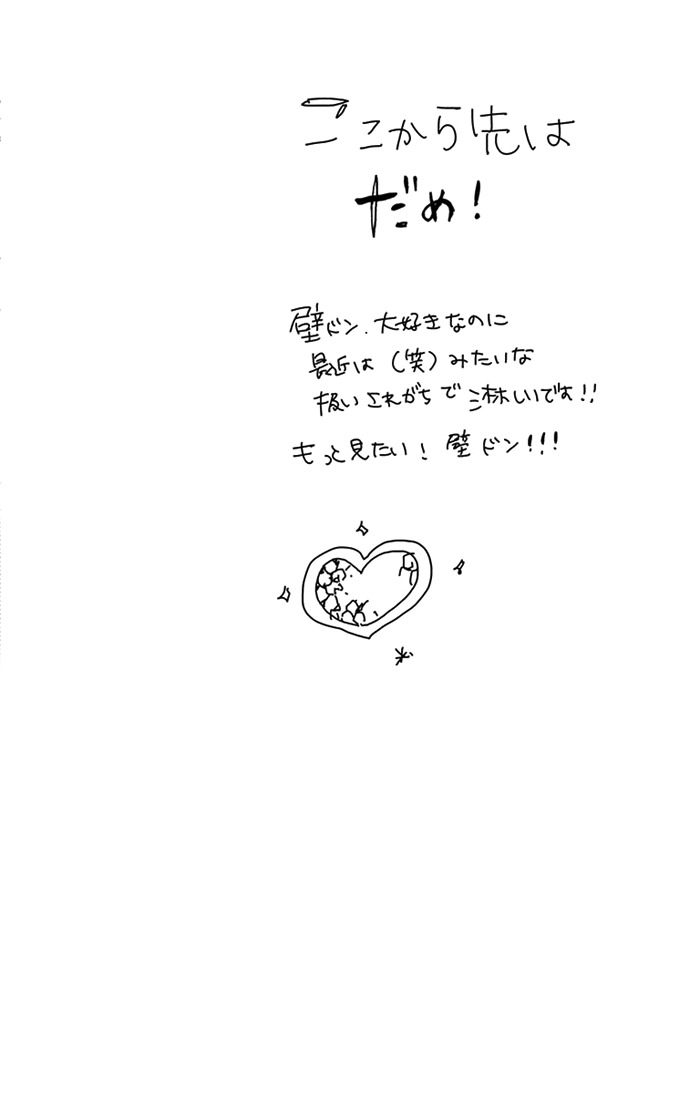 ここから先は
だめ!
壁ドン.大好きなのに
最近は(笑)みたいな
扱いされがちで淋しいです!!
もっと見たい!壁ドン!!!